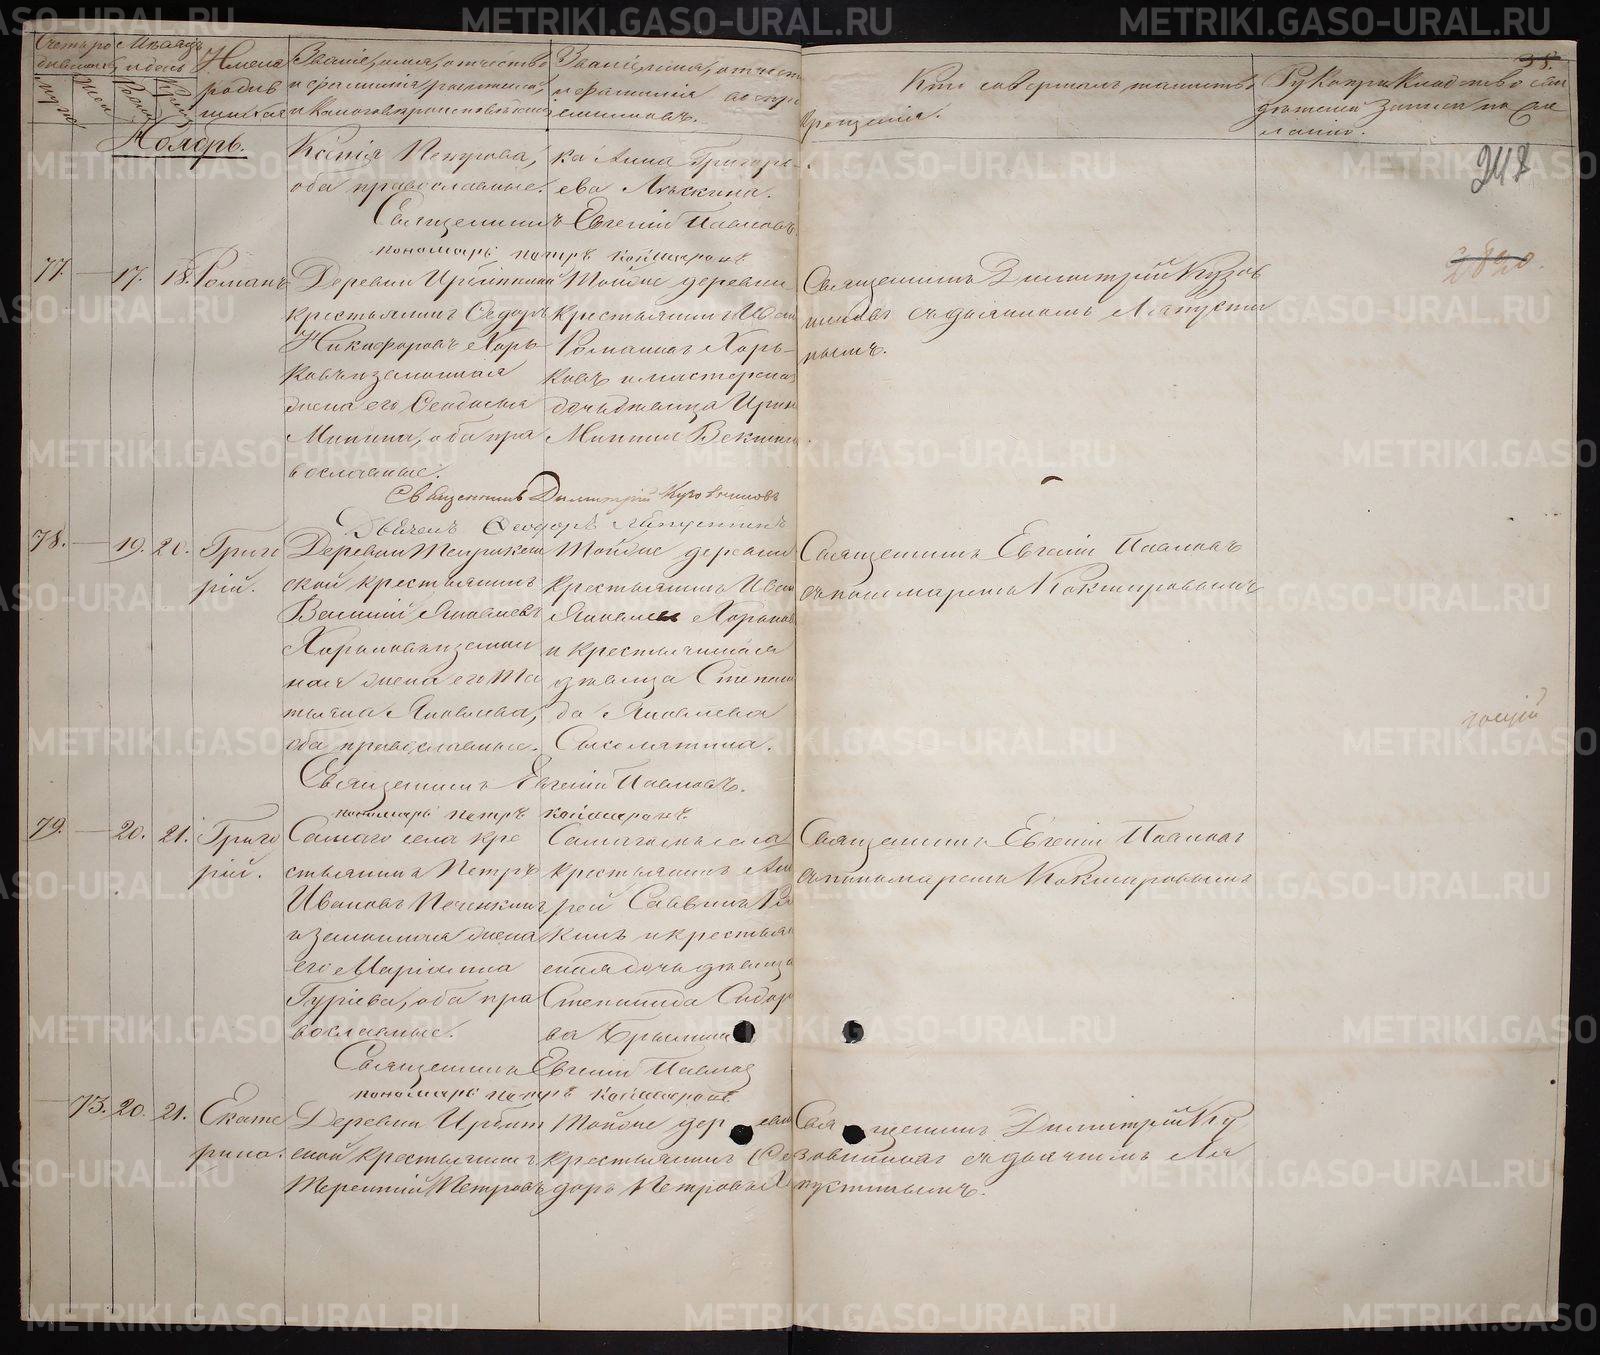 METRIKI.GASO-URAL.RU
Счетъ ро Мѣсяцъ
дившихся и день
муж. жен. Рожд. Крещ.
Имена родив шихся
Званіе, имя, отчество и фамилія родителей, и какого вѣроисповѣданія
Званіе, имя, отчество и фамилія воспріемниковъ.
Кто совершалъ таинство крещенія.
Рукоприкладство сви дѣтелей записи по же ланію.
38.
248
Ноябрь.
Ксенія Петрова, оба православные.
ка Анна Григорь ева
Священникъ Евгеній Павловъ
пономарь Петръ Кокшаровъ
2820.
77. — 17. 18. Романъ
Деревни
крестьянинъ Сидоръ
Никифоровъ Хорь
ковъ и законная
жена его Феодосья
Минина, оба пра
вославные.
Тойже деревни
крестьянинъ Иван
Романовъ Хорь
ковъ и
дочь дѣвица Ирин
Священникъ Димитрій Кузов
никовъ съ дьячкомъ Ляпусти
нымъ.
Священникъ Димитрій Кузовниковъ
Дьячекъ Феодоръ Ляпустинъ
78. — 19. 20. Григо
рій.
Деревни
ской крестьянинъ
Василій Яковлевъ
и закон
ная жена его Та
тьяна Яковлева,
оба православные.
Тойже деревни
крестьянинъ Иван
Яковлевъ
и крестьянская
дѣвица Степани
да Яковлева
Священникъ Евгеній Павловъ
съ пономаремъ Кокшаровымъ
Священникъ Евгеній Павловъ.
пономарь Петръ Кокшаровъ.
79. — 20. 21. Григо
рій.
Самаго села кре
стьянинъ Петръ
Ивановъ Печенкинъ
и законная жена
его Маріамна
Гуріева, оба пра
вославные.
Самагожъ села
крестьянинъ Анд
рей Саввинъ
кинъ и крестьян
ская дочь дѣвица
Степанида Сидор
ва
Священникъ Евгеній Павловъ
съ пономаремъ Кокшаровымъ
Священникъ Евгеній Павлов
пономарь Петръ Кокшаровъ
— 73. 20. 21. Екате
рина.
Деревни Ирбит
ской крестьянинъ
Терентій Петровъ
Тойже деревни
крестьянинъ Фе
доръ Петровъ
Священникъ Димитрій Ку
зовниковъ съ дьячкомъ Ля
пустинымъ.